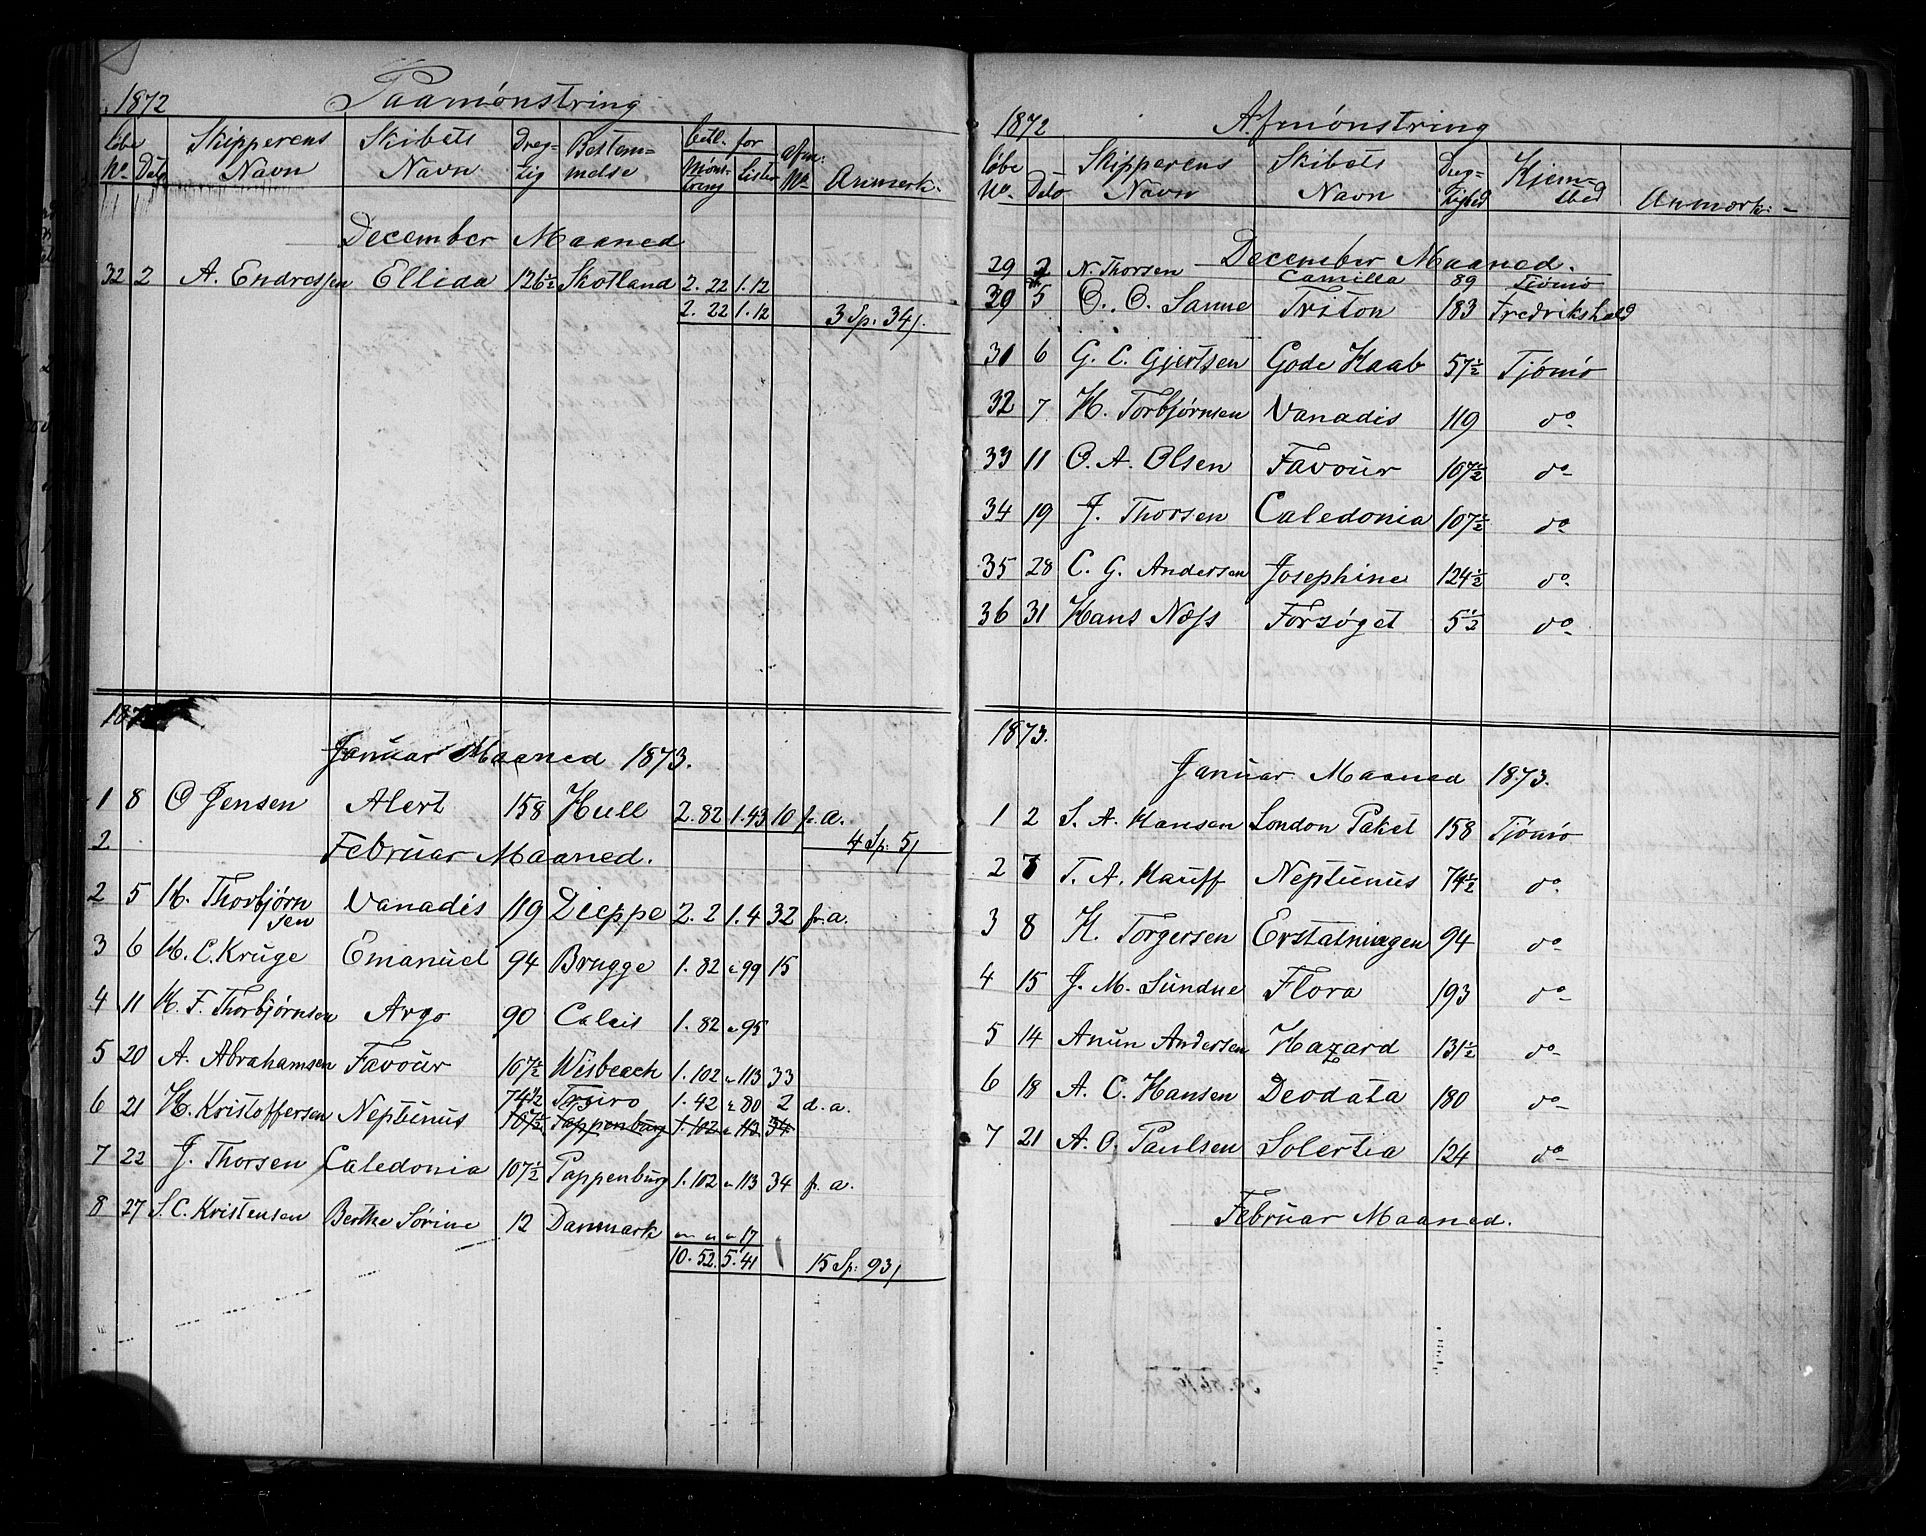 1872 Paamønstring
løbe No Dato Skipperens Navn Skibets Navn Dreg- tig Bestem= melse betl. for Møns- tring Lister afm: No Anmerk.
December Maaned
32 2 A. Endressen Ellida 126½ Skotland 2. 22 1. 12
2. 22 1. 12 3 Sp: 34
Januar Maaned 1873.
1 8 O Jensen Alert 158 Hull 2. 82 1. 43 10 f. a.
2 4 Sp: 5
Februar Maaned.
2 5 H. Thorbjørn sen Vanadis 119 Dieppe 2. 2 1. 4 32 fr. a.
3 6 H. C. Kruge Emanuel 94 Brugge 1. 82 " 99 15
4 11 H. F. Thorbjørnsen Argo 90 Calais 1. 82 " 95
5 20 A. Abrahamsen Favour 107½ Wisbeach 1. 102 " 113 33
6 21 H. Kristoffersen Neptunus 74½ 1. 42 " 80 2 d. a.
107½ Pappenburg 1. 102 " 113 34
7 22 J. Thorsen Caledonia 107½ Pappenburg 1. 102 " 113 34 f. a.
8 27 S. C. Kristensen Berthe Sørine 12 Danmark " " " 17
10. 52. 5. 41 15 Sp: 93
1872 Afmønstring
løbe No Dato Skipperens Navn Skibets Navn Dreg= tighed Hjem= sted Anmærk: -
December Maaned.
29 2 N. Thorsen Camilla 89 Tjømø
30 5 O. O. Sanne Triton 183 Fredrikshald
31 6 G. C. Gjertsen Gode Haab 57½ Tjømø
32 7 H. Torbjørnsen Vanadis 119 do
33 11 O. A. Olsen Favour 107½ do
34 19 J. Thorsen Caledonia 107½ do
35 28 C. G. Andersen Josephine 124½ do
36 31 Hans Næss Forsøget 5½ do
1873.
Januar Maaned 1873.
1 2 S. A. Hansen London Paket 158 Tjømø
2 7 T. A. Hauff Neptunus 74½ do
3 8 H. Torgersen Erstatningen 94 do
4 15 J. M. Sundue Flora 193 do
5 14 Anun Andersen Hazard 131½ do
6 18 A. C. Hansen Deodata 180 do
7 21 A. O. Paulsen Solertia 124 do
Februar Maaned.